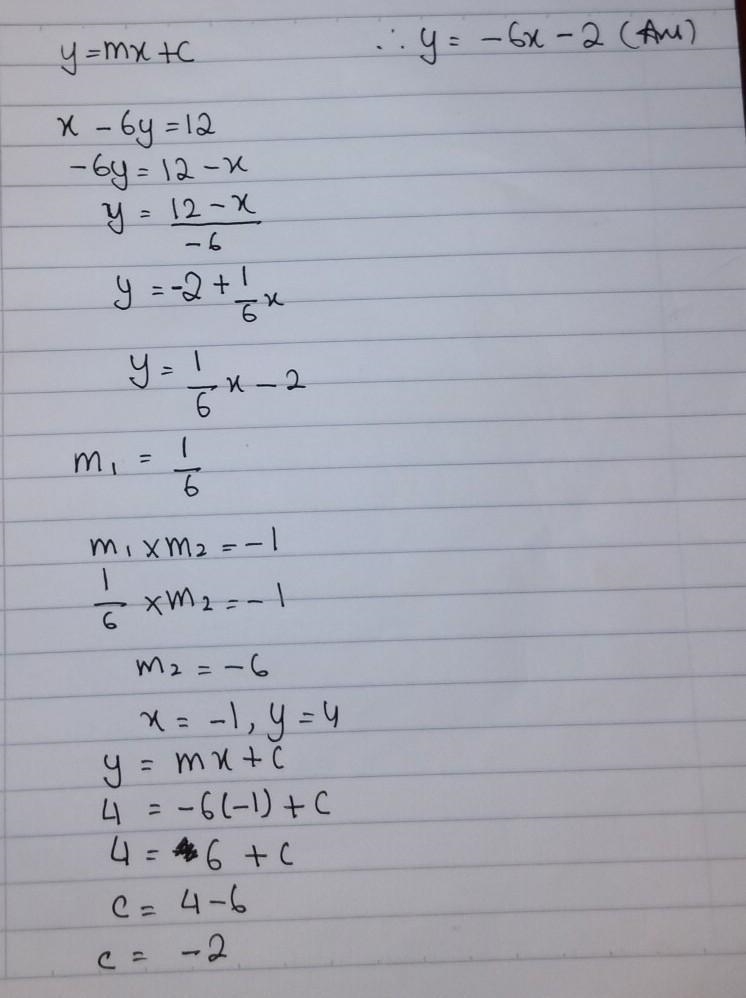 y = mx + c
∴ y = -6x - 2 (Ans)
x - 6y = 12
-6y = 12 - x
y = \frac{12 - x}{-6}
y = -2 + \frac{1}{6}x
y = \frac{1}{6}x - 2
m₁ = \frac{1}{6}
m₁ × m₂ = -1
\frac{1}{6} × m₂ = -1
m₂ = -6
x = -1, y = 4
y = mx + c
4 = -6(-1) + c
4 = 6 + c
c = 4 - 6
c = -2